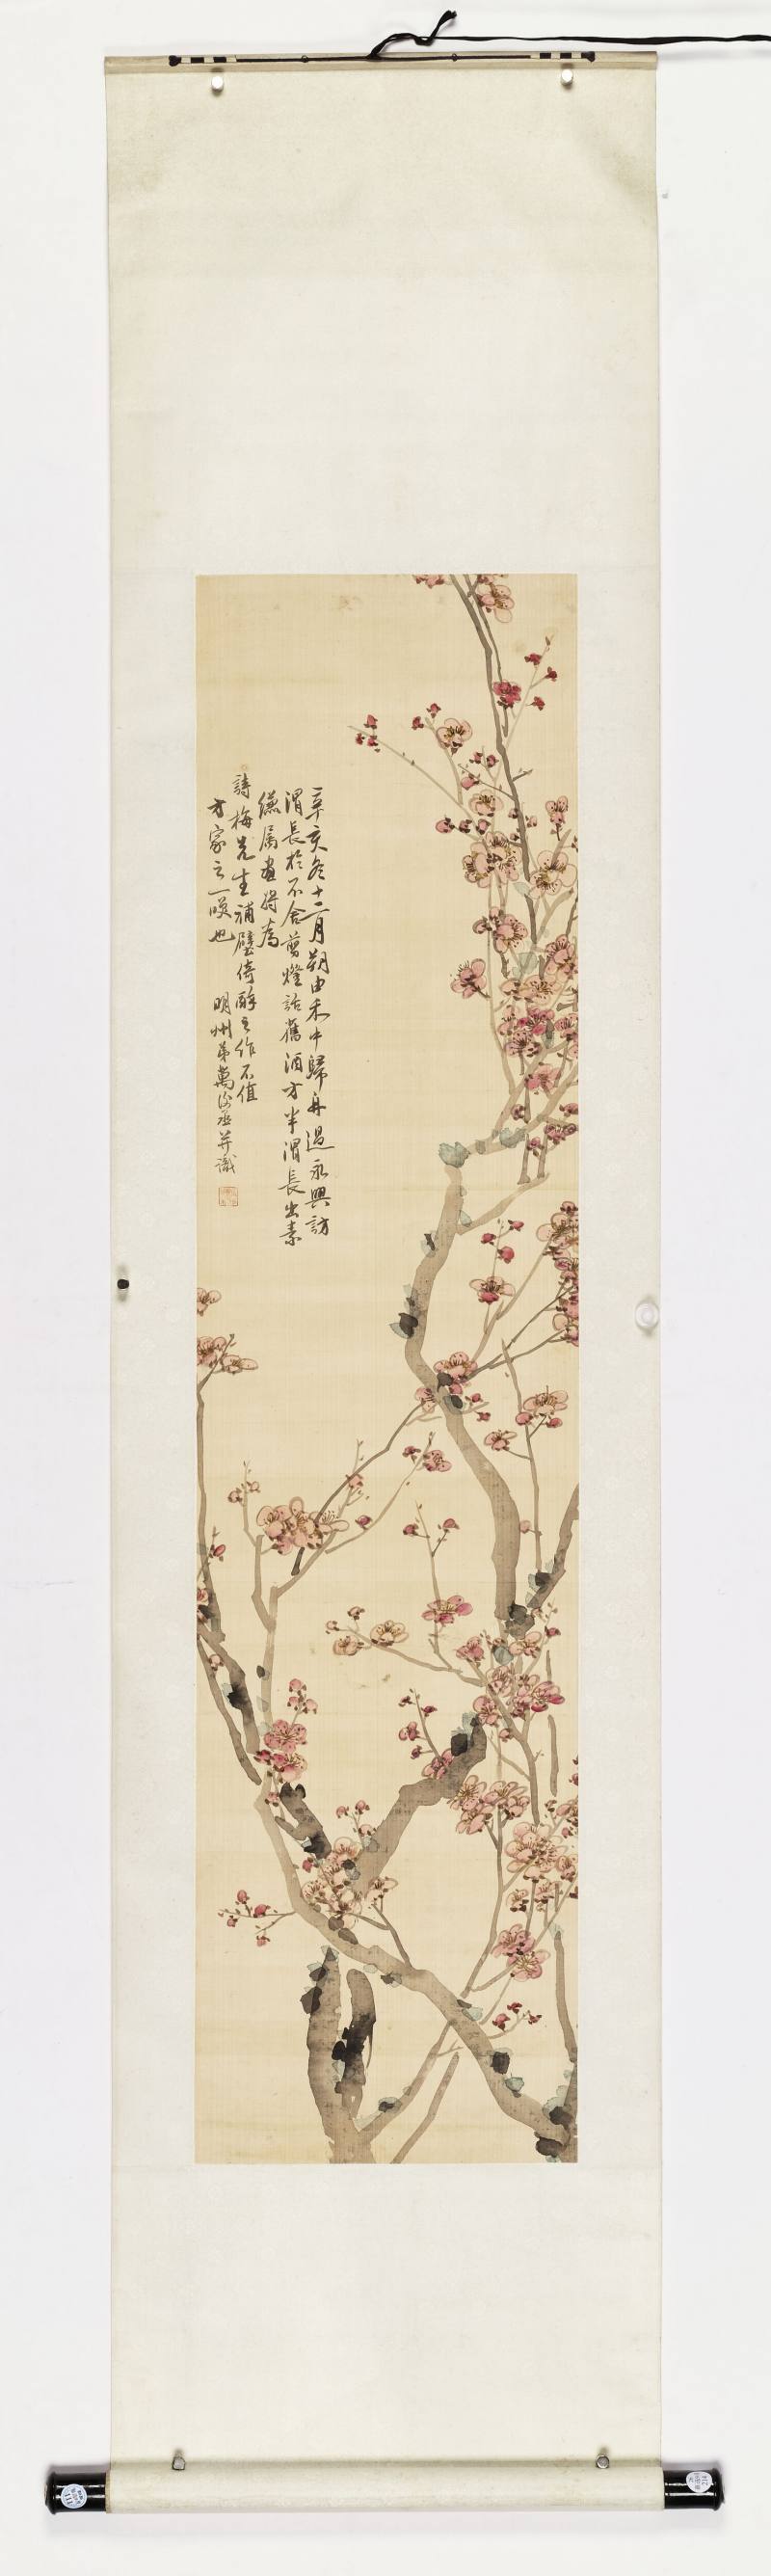 辛亥冬十二月朔由禾中歸舟過永興訪
渭長於不舍剪燈話舊酒方半渭長出素
縑属畫將為
詩梅先生補壁倚醉之作不值
方家之一哂也　明州弟萬後丞并識